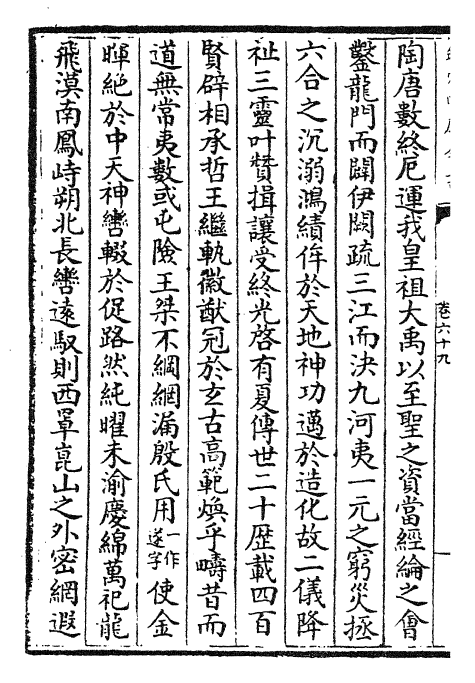 陶唐數終厄運我皇祖大禹以至聖之資當經綸之會
鑿龍門而闢伊闕疏三江而決九河夷一元之窮災拯
六合之沉溺鴻績侔於天地神功邁於造化故二儀降
祉三靈叶贊揖讓受終光啓有夏傳世二十歴載四百
賢辟相承哲王繼軌徽猷冠於玄古高範煥乎疇昔而
道無常夷數或屯險王桀不綱網漏殷氏用一作遂字使金
暉絶於中天神轡輟於促路然純曜未渝慶綿萬祀龍
飛漠南鳳峙朔北長轡逺馭則西罩崑山之外密網遐
卷六十九